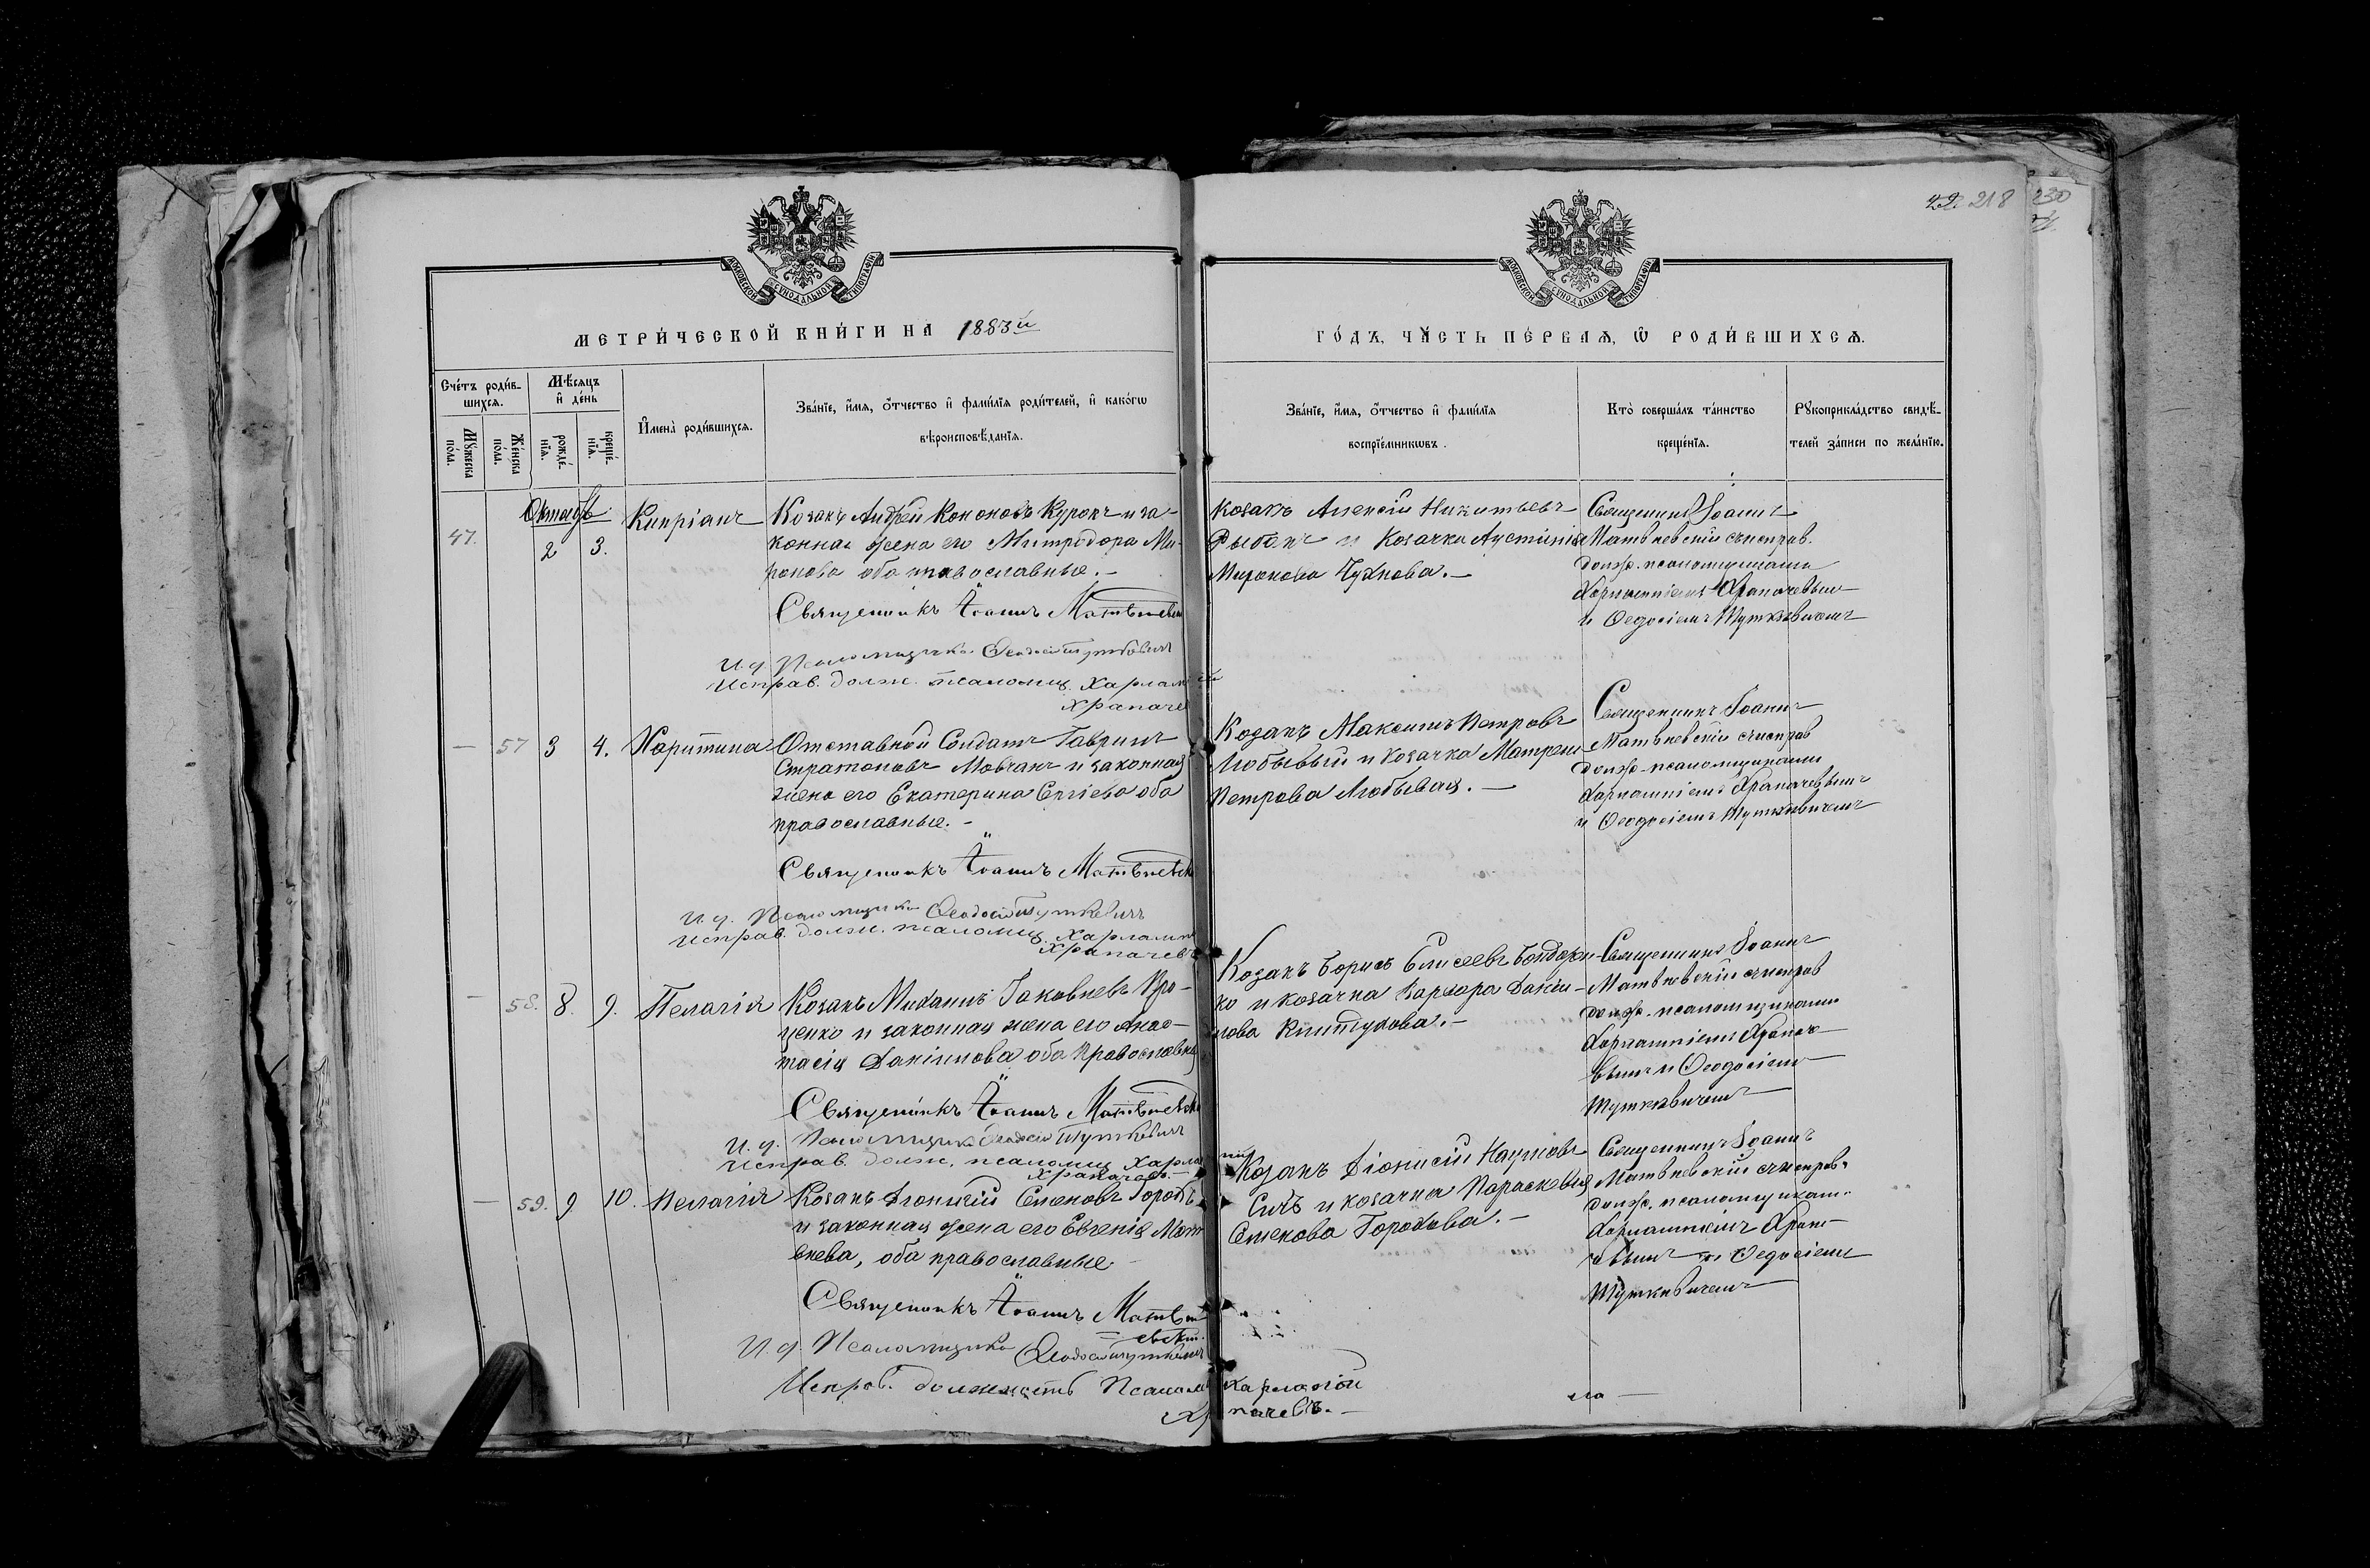 42. 218
230
МОСКОВСКОЙ СѴНОДАЛЬНОЙ ТИПОГРАФІИ
МЕТРИ́ЧЕСКОЙ КНИ́ГИ НА 1883й
Сче́тъ роди́в-
шихсѧ.
Мѣ́сяцъ
и҆ де́нь
Мꙋ́жеска
по́ла.
Же́нска
по́ла.
рожде́-
нїѧ.
креще́-
нїѧ.
И҆мена̀ роди́вшихсѧ.
Зва́нїе, и҆́мѧ, ѻ҆́тчество и҆ фами́лїѧ роди́телей, и҆ како́гѡ
вѣроисповѣ́данїѧ.
Октябрь
47.
2 3.
Кипріанъ
Козакъ Андрей Кононовъ Курокъ и за-
конная жена его Митродора Ми-
ронова оба православные.-
Священникъ Іоаннъ Матвѣевск
И. д. Псаломщика Ѳеодосій Туткевичъ
Исправ. долж. псаломщ. Харлампій
Храпаче
— 57 3 4.
Харитина
Отставной Солдатъ Гавріилъ
Стратоновъ Мовчанъ и законная
жена его Екатерина Сергіева оба
православные.-
Священникъ Іоаннъ Матвѣевск
И. д. Псаломщика Ѳеодосій Туткевичъ
Исправ. долж. псаломщ. Харлампі
Храпачевъ
— 58. 8. 9.
Пелагія
Козакъ Михаилъ Іаковлевъ Про-
ценко и законная жена его Анас-
тасія Даніилова оба православны
Священникъ Іоаннъ Матвѣевск
И. д. Псаломщика Ѳеодосій Туткевичъ
Исправ. долж. псаломщ. Харлам
пій
Храпачевъ.-
— 59. 9 10.
Пелагія
Козакъ Діонисій Семеновъ
и законная жена его Евгенія Мат-
ѳеева, оба православные
Священникъ Іоаннъ Матвѣ
евскій.
И. д. Псаломщика Ѳеодосій Туткевичъ
Исправ. должность Псалом Харлампій
Хра пачевъ.-
МОСКОВСКОЙ СѴНОДАЛЬНОЙ ТИПОГРАФІИ
ГО́ДЪ, ЧА́СТЬ ПЕ́РВАѦ, Ѡ҆ РОДИ́ВШИХСѦ.
Зва́нїе, и҆́мѧ, ѻ҆́тчество и҆ фами́лїѧ
воспрїе́мникѡвъ.
Кто̀ соверша́лъ та́инство
креще́нїѧ.
Рꙋкоприкла́дство свидѣ́-
телей за́писи по жела́нїю.
Козакъ Алексій Никитьевъ
Рыбакъ и Козачка Аустинія
Миронова Чухнова.-
Священникъ Іоаннъ
Матвѣевскій съ исправ.
долж. псаломщиками
Харлампіемъ Храпачевымъ
и Ѳеодосіемъ Туткевичемъ
Козакъ Максимъ Петровъ
Любывый и козачка Матрена
Петрова Любывая.-
Священникъ Іоаннъ
Матвѣевскій съ исправ
долж. псаломщиками
Харлампіемъ Храпачевымъ
и Ѳеодосіемъ Туткевичемъ
Козакъ Борисъ Елисеевъ Бондарен-
ко и козачка Варвара Даніи-
лова
Священникъ Іоаннъ
Матвѣевскій съ исправ
долж. псаломщиками
Харлампіемъ Храпаче
вымъ и Ѳеодосіемъ
Туткевичемъ
Козакъ Діонисій Наумовъ
и козачка Параскевія
Семенова Горохова.-
Священникъ Іоаннъ
Матвѣевскій съ исправ.
долж. псаломщикам.
Харлампіемъ Храпа-
чевымъ и Ѳеодосіемъ
Туткевичемъ